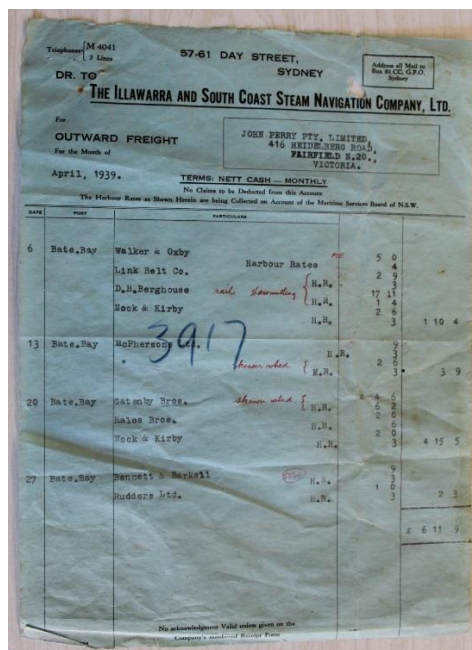 Telephones M 4041
3 Lines
57-61 DAY STREET,
SYDNEY
Address all Mail to
Box 83 CC, G.P.O.
Sydney
DR. TO
THE ILLAWARRA AND SOUTH COAST STEAM NAVIGATION COMPANY, LTD.
For
OUTWARD FREIGHT
For the Month of
April, 1939.
JOHN PERRY PTY. LIMITED,
416 HEIDELBERG ROAD,
FAIRFIELD N.20.,
VICTORIA.
TERMS: NETT CASH — MONTHLY
No Claims to be Deducted from this Account
The Harbour Rates as Shewn Herein are being Collected on Account of the Maritime Services Board of N.S.W.
DATE PORT PARTICULARS
6 Bate.Bay Walker & Oxby 5 0
Harbour Rates 4
Link Belt Co. 2 9
H.R. 3
D.H.Berghouse rail 17 11
H.R. 1 4
Nock & Kirby 2 6
H.R. 3 1 10 4
3917
13 Bate.Bay McPhersons Ltd. 9
H.R. 3
2 6
H.R. 3 3 9
20 Bate.Bay Gatenby Bros. 4 4 6
H.R. 6 2
Hales Bros. 2 0
H.R. 6
Nock & Kirby 2 0
H.R. 3 4 15 5
27 Bate.Bay Bennett & Barkell 9
H.R. 3
Rudders Ltd. 1 0
H.R. 3 2 3
£ 6 11 9
No acknowledgment Valid unless given on the
Company's numbered Receipt Form